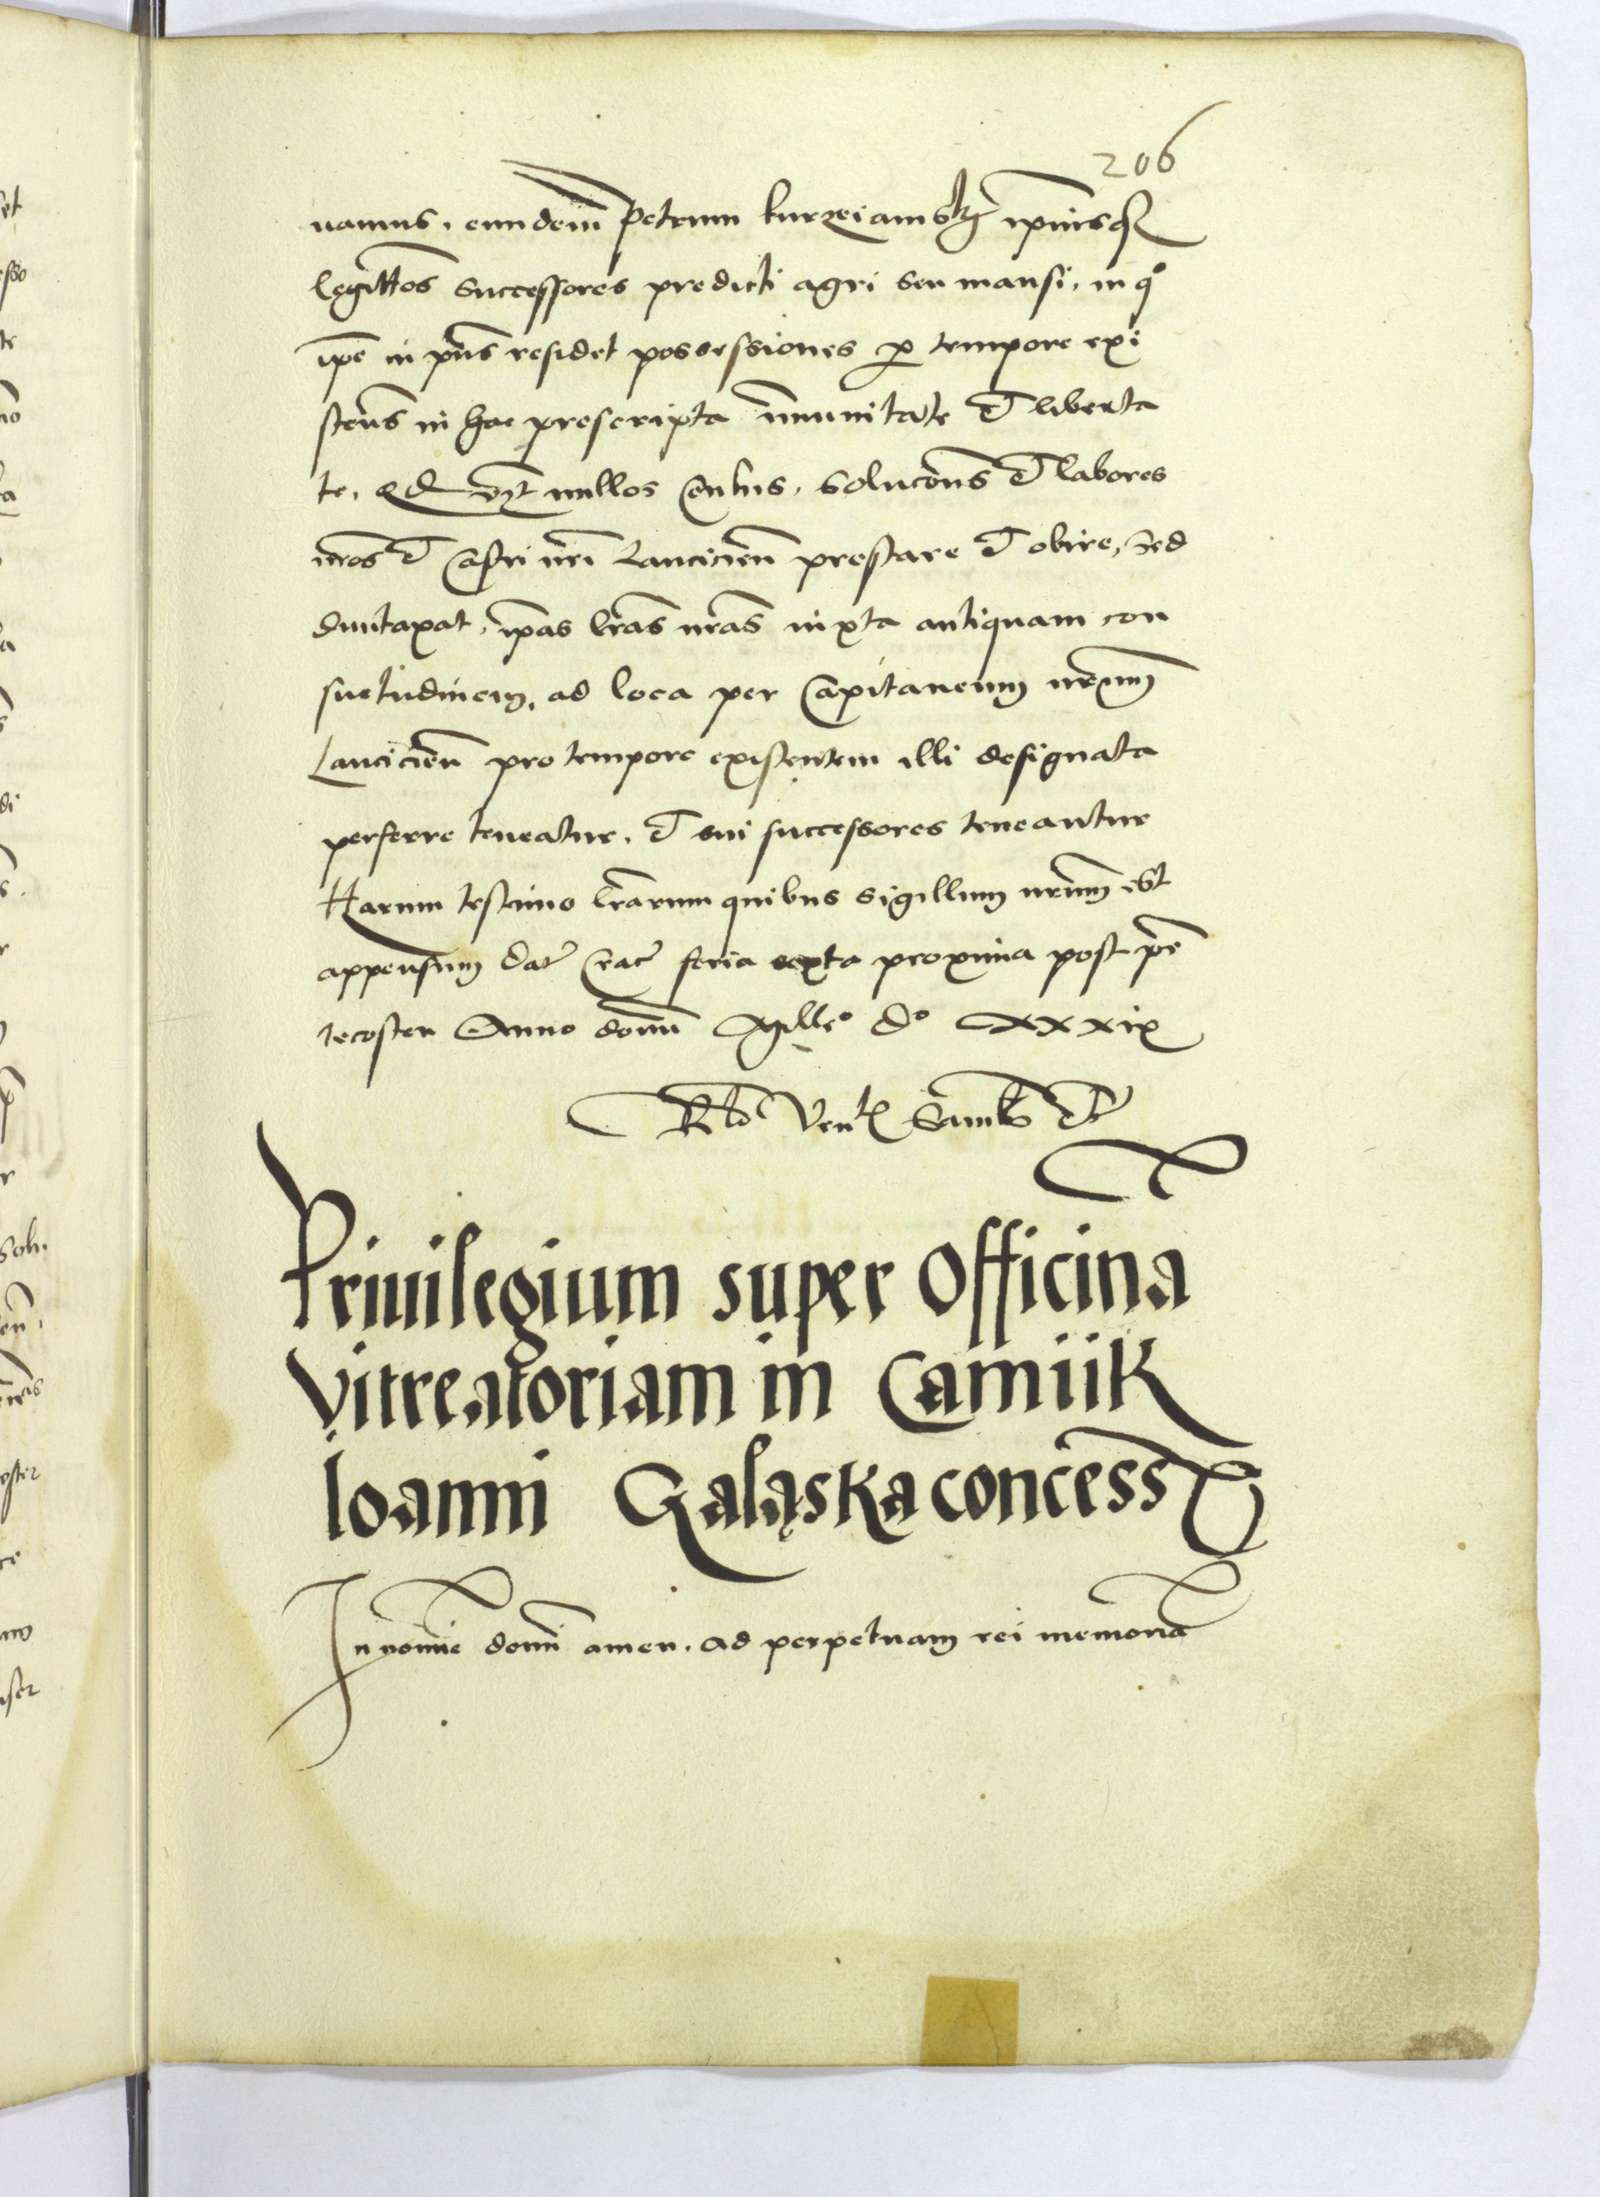 206
uamus, eundem̄ Petrum kurzeiamsky ip̄iusq3
legitt̄os successores predicti agri seu mansi, in qº
ip̄e in pn̄s residet possessiones p tempore exi
sten̄s in hac prescripta im̄unitate et liberta
te, nullos census, solucōns et labores
nr̄os et castri nr̄i Lancicien̄ prestare et obire, sed
duntaxat, ip̄as lr̄as nr̄as iuxta antiquam con
suetudinem, ad loca per Capitaneum nr̄um
Lancicien̄ pro tempore existentem illi designata
perferre teneatur, et sui successores teneantur
Harum testimo lr̄arum quibus sigillum nr̄um est
appensum dat̄ Crac̄ feria sexta proxima post pē
tecosten Anno domī Millº dº xxxix
Rtō Ven Sam
Priuilegium super Officina
Vitreatoriam in Camiik
Ioanni Galąska concess
In noīe domī amen. ad perpetuam rei memoriā